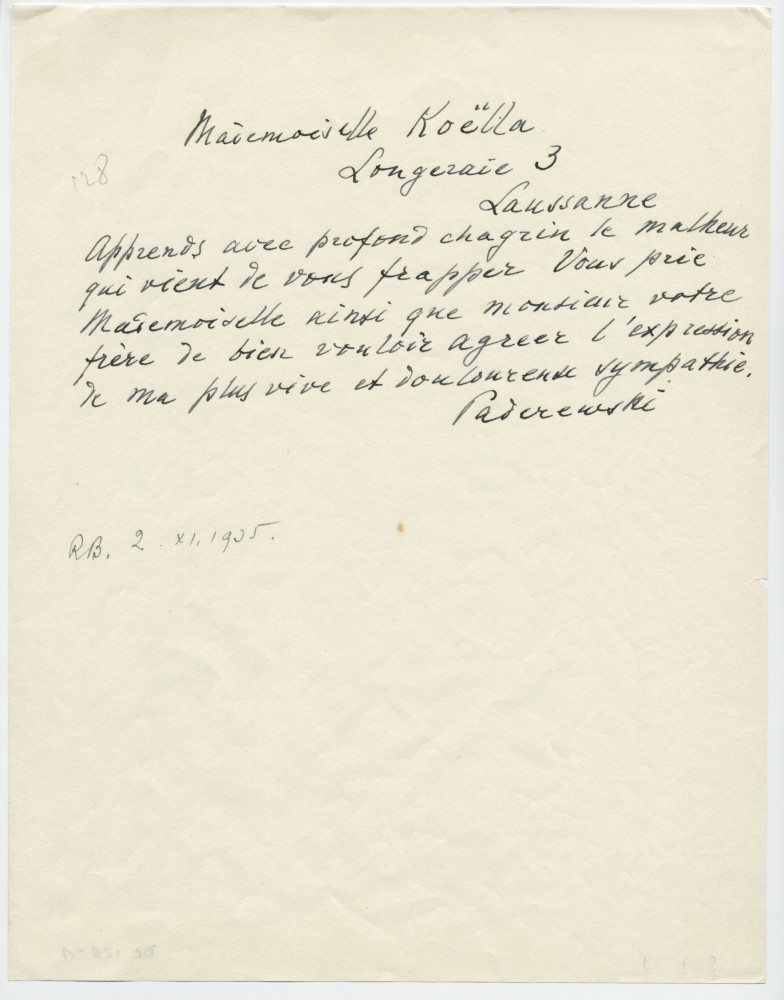 Mademoiselle Koëlla
128
Longeraie 3
Laussanne
Apprends avec profond chagrin le malheur
qui vient de vous frapper Vous prie
Mademoiselle ainsi que monsieur votre
frère de bien vouloir agreer l'expression
de ma plus vive et douloureuse sympathie.
Paderewski
RB. 2. XI. 1935.